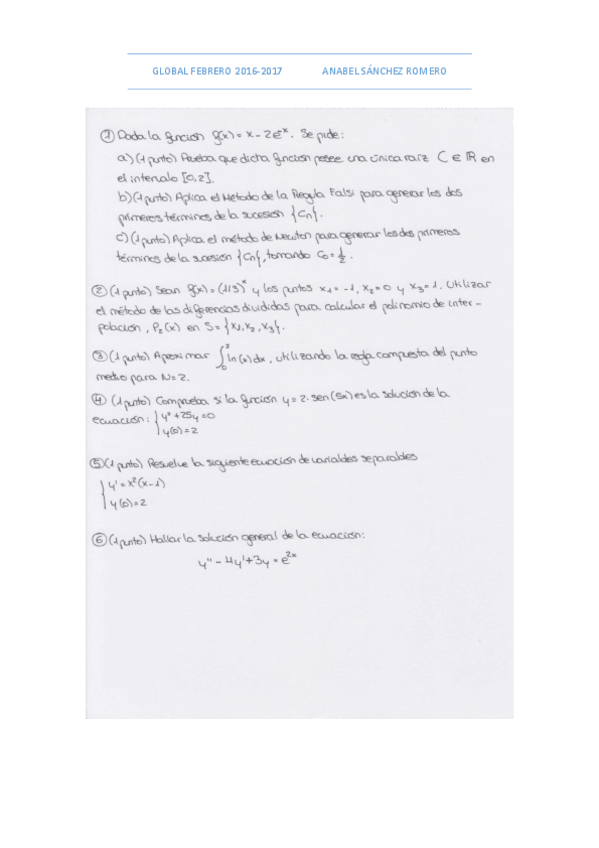 GLOBAL FEBRERO 2016-2017 ANABEL SÁNCHEZ ROMERO
① Dada la función f(x) = x - 2e⁻ˣ. Se pide:
a) (1 punto) Prueba que dicha función posee una única raíz C ∈ ℝ en
el intervalo [0,2].
b) (1 punto) Aplica el Método de la Regula Falsi para generar los dos
primeros términos de la sucesión {Cn}.
c) (1 punto) Aplica el método de Newton para generar los dos primeros
términos de la sucesión {Cn}, tomando C₀ = 1/2.
② (1 punto) Sean f(x) = (1/3)ˣ y los puntos x₁ = -1, x₂ = 0 y x₃ = 1. Utilizar
el método de las diferencias divididas para calcular el polinomio de inter-
polación, P₂(x) en S = {x₁, x₂, x₃}.
③ (1 punto) Aproximar ∫₀² ln(x) dx, utilizando la regla compuesta del punto
medio para N = 2.
④ (1 punto) Comprueba si la función y = 2·sen(5x) es la solución de la
ecuación: { y'' + 25y = 0
y(0) = 2
⑤ (1 punto) Resuelve la siguiente ecuación de variables separables
{ y' = x²(x-1)
y(0) = 2
⑥ (1 punto) Hallar la solución general de la ecuación:
y'' - 4y' + 3y = e²ˣ